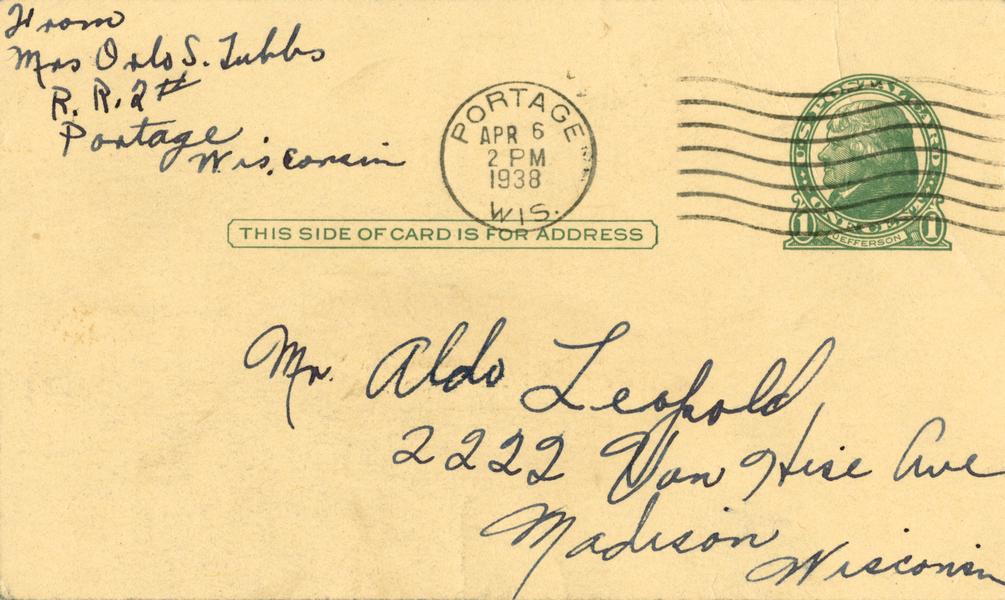 From
Mrs Orlo S. Tubbs
R. R. 2 #
Portage
Wisconsin
PORTAGE
APR 6
2 PM
1938
WIS.
U.S. POSTAL CARD
ONE CENT
1 JEFFERSON 1
THIS SIDE OF CARD IS FOR ADDRESS
Mr. Aldo Leopold
2222 Van Hise Ave
Madison
Wisconsin